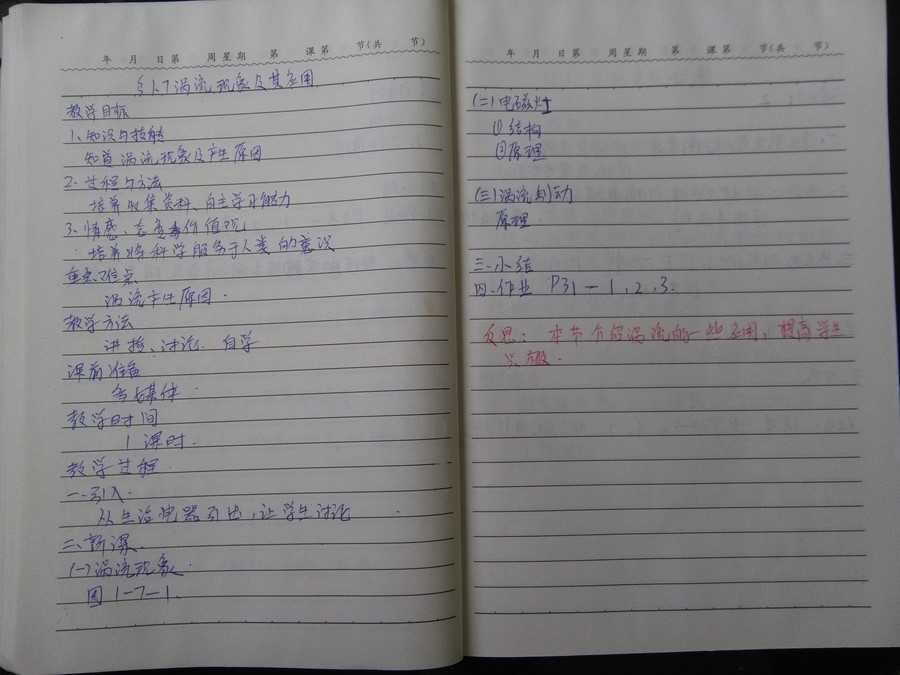 年 月 日第 周星期 第 课第 节(共 节)
§1.7 涡流现象及其应用
教学目标
1、知识与技能
知道涡流现象及产生原因
2. 过程与方法
培养收集资料、自主学习能力
3、情感、态度与价值观
培养将科学服务于人类的意识
重点、难点
涡流产生原因.
教学方法
讲授、讨论、自学
课前准备
多媒体
教学时间
1课时.
教学过程.
一.引入.
从生活电器引出,让学生讨论
二、新课.
(一)涡流现象.
图1-7-1.
年 月 日第 周星期 第 课第 节(共 节)
(二)电磁灶
①结构
②原理
(三)涡流制动
原理.
三.小结
四.作业 P31-1.2.3.
反思:本节介绍涡流的一些应用,提高学生
兴趣.